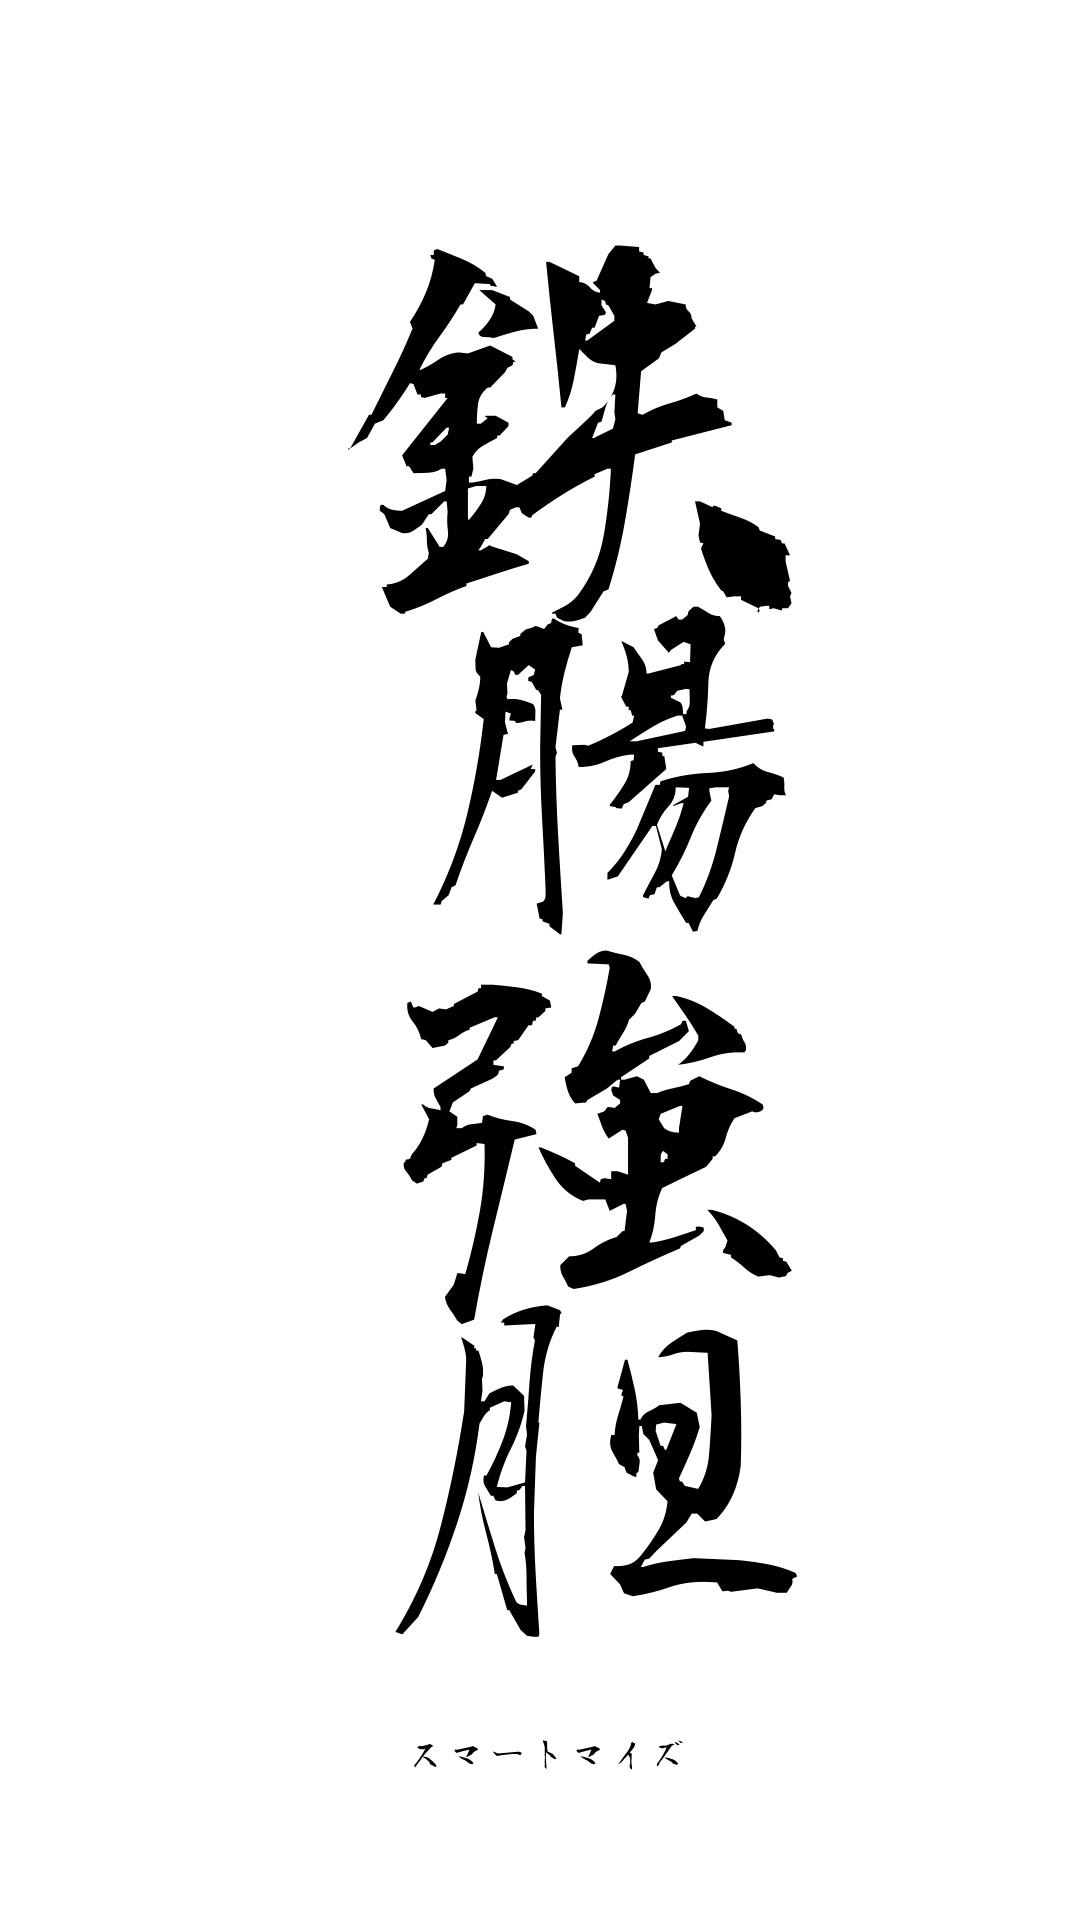 鉄腸強胆
スマートマイズ